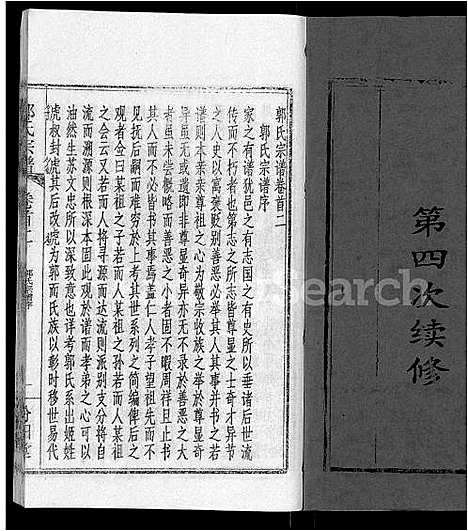 第四次续修
郭氏宗谱卷首二
郭氏宗谱序
家之有谱犹邑之有志国之有史所以垂诸后世流
传而不朽者也第志之所志皆尊显之士奇才异节
之人史以寓褒贬别善恶必举其人其事并书之若
谱则本亲亲尊祖之心为敬宗收族之举于尊显奇
异虽无或遗即非尊显奇异亦无不录于善恶之大
者虽未尝概略而善恶之小者固不暇周祥且止书
其人而不必皆书其事焉盖仁人孝子望祖先而不
见抚后嗣而难穷于是考其世系列之简编俾后之
观者佥曰某祖之子若而人某祖之孙若而人某祖
之会云又若而人将穿派而达流则派别支分将自
流而溯源则根深本固此观於谱而孝弟之心可以
油然生苏文忠所以深致意也详考郭氏系出姬姓
虢叔封虢其后改虢为郭而氏族以彰时移世易代
郭氏宗谱
卷首二
Search